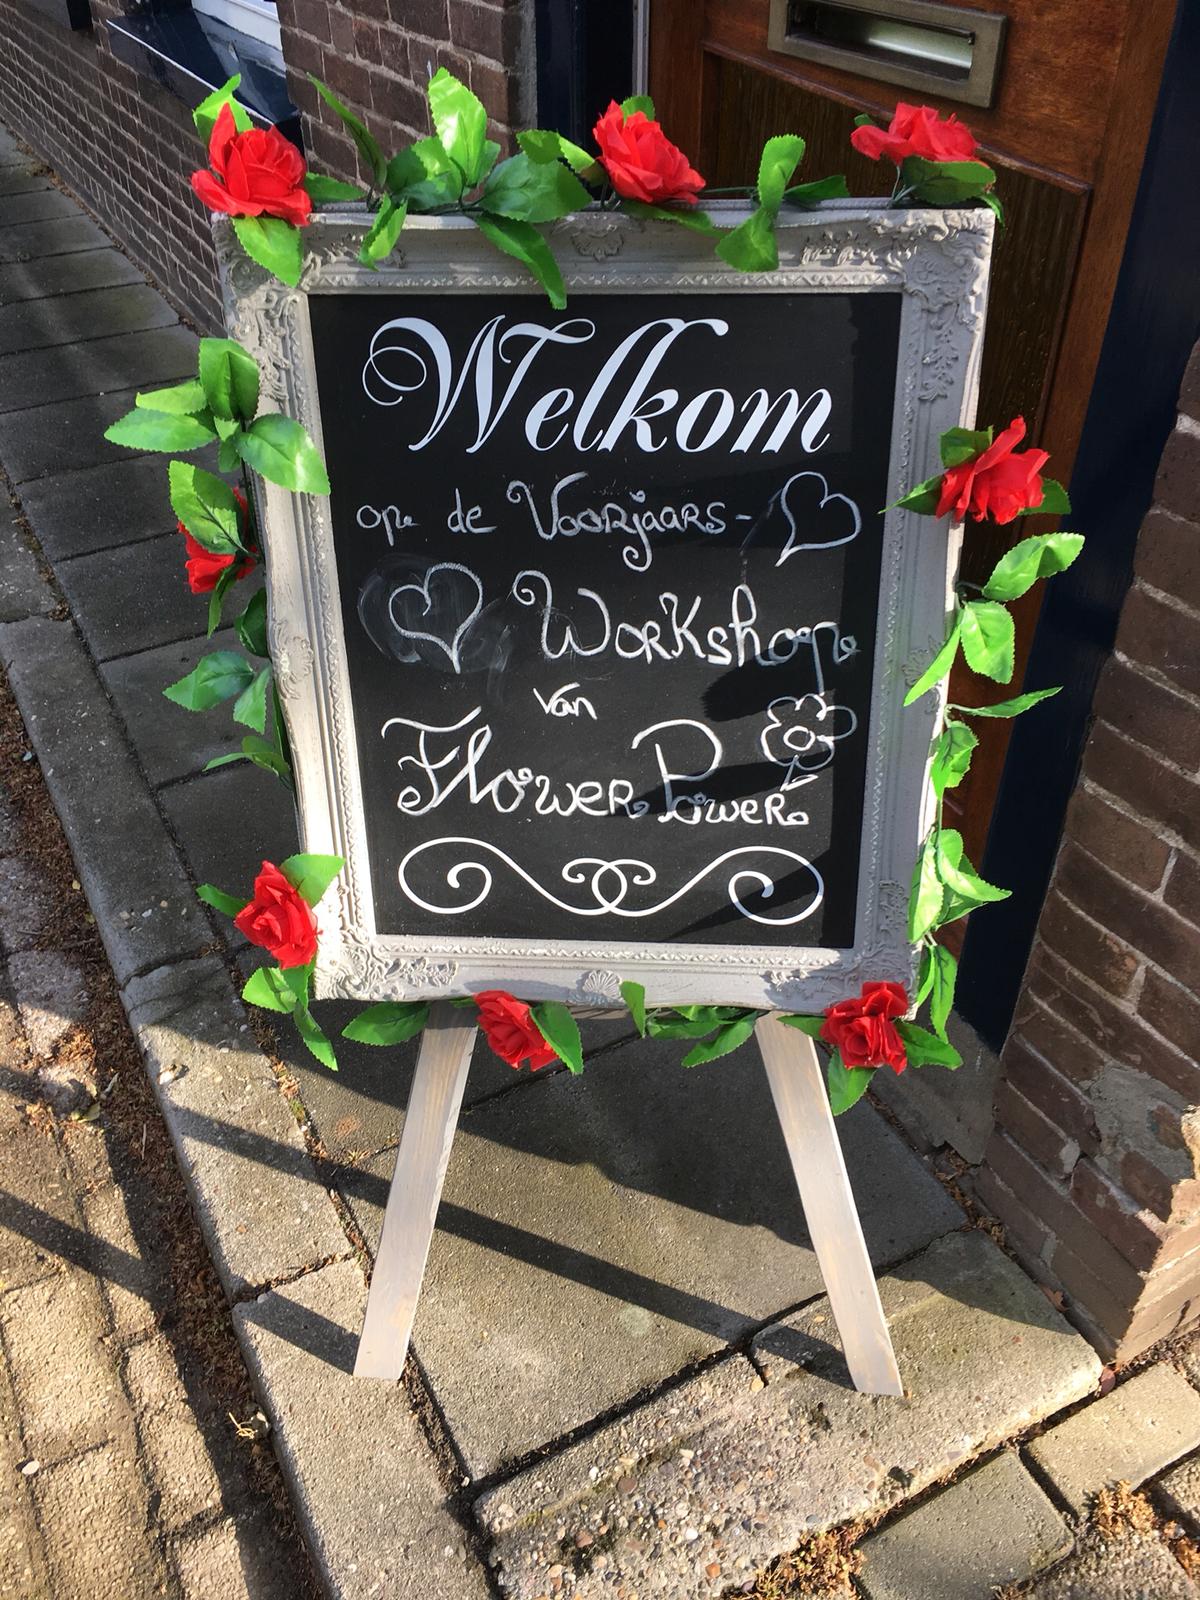 Welkom
op de Voorjaars-
Workshop
van
Flower Power